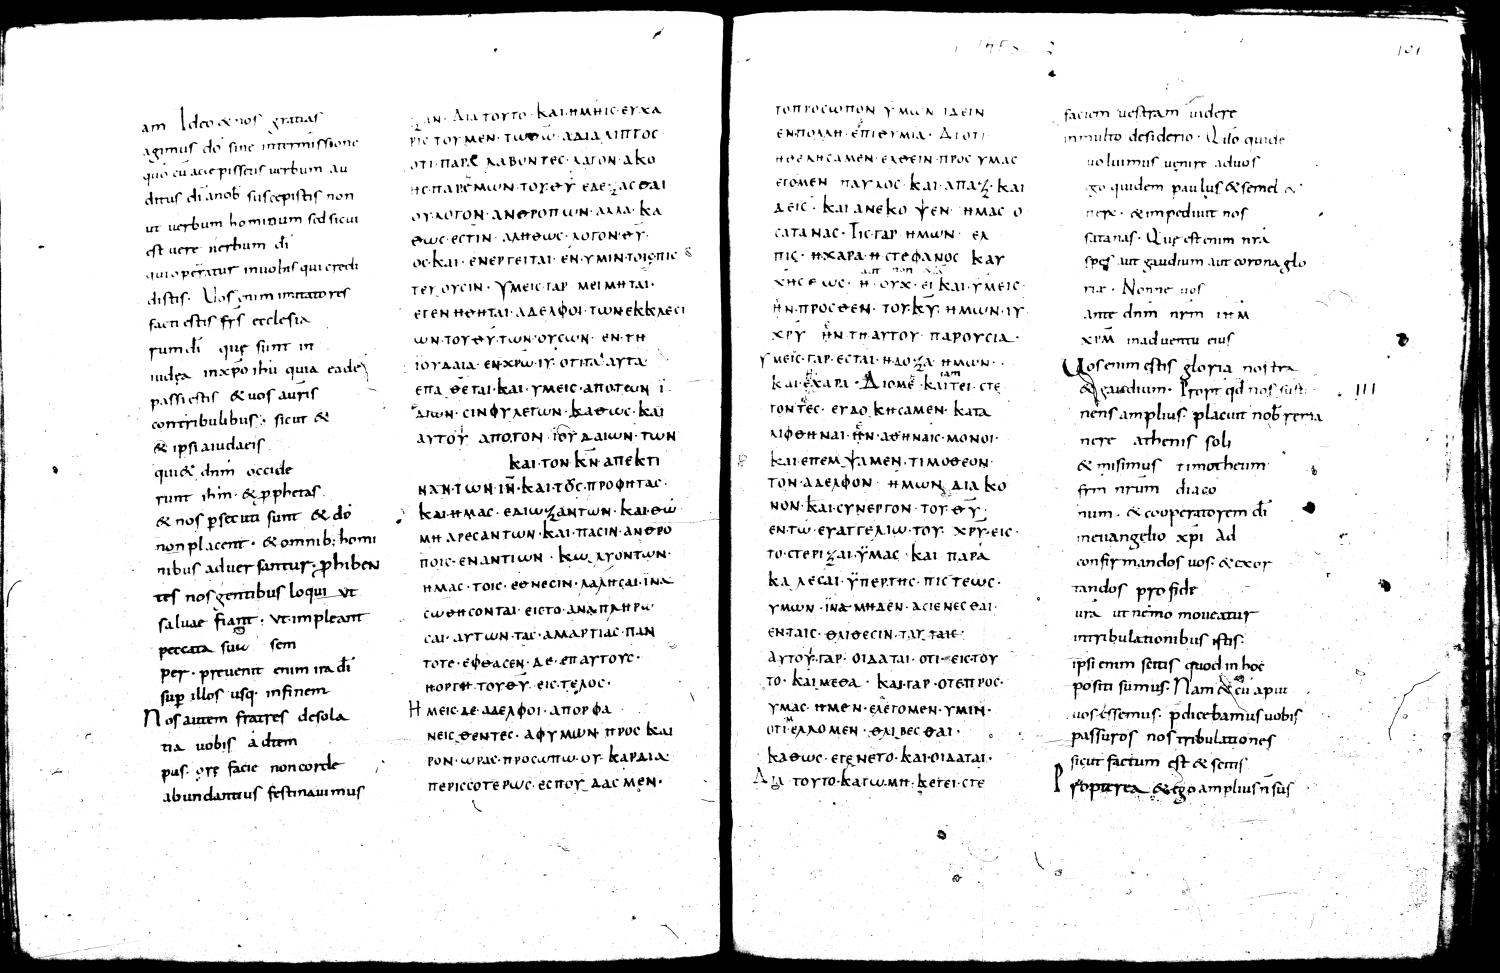 am Ideo & nos gratias
agimus dō sine intermissione
quō cū accepissetis verbum au
ditus dī anob suscepistis non
ut verbum hominum sed sicut
est vere verbum dī
qui operatur in vobis qui credi
distis. Vos enim imitatores
facti estis frs ecclesia
rum dī quę sunt in
iudęa in xpo ihu quia eadē
passi estis & vos auris
contribulibus. sicut &
& ipsi aiudaeis
qui & dnm occide
runt ihm. & pphetas.
& nos psecuti sunt & dō
non placent. & omnib; homi
nibus adversantur. phiben
tes nos gentibus loqui ut
salvae fiant. ut impleant
peccata sua sem
per. prevenit enim ira dī
sup illos usq. in finem
Nos autem fratres desola
tia vobis ad tem
pus. ore facie non corde
abundantius festinavimus
ΞΑΝ· ΔΙΑ ΤΟΥΤΟ· ΚΑΙ·ΗΜΗΙΣ·ΕΥΧΑ
ΡΙΣ ΤΟΥΜΕΝ· ΤΩΘΩ· ΑΔΙΑ ΛΙΠΤΟΣ·
ΟΤΙ·ΠΑΡΕ ΛΑΒΟΝΤΕΣ·ΛΑΓΟΝ·ΑΚΟ
ΗΣ·ΠΑΡΕΜΩΝ·ΤΟΥ·ΘΥ ΕΔΕΞΑΣΘΑΙ
ΟΥ·ΛΟΓΟΝ· ΑΝΘΡΟΠΩΝ·ΑΛΛΑ· ΚΑ
ΘΩΣ·ΕΣΤΙΝ· ΑΛΗΘΩΣ· ΛΟΓΟΝ·ΘΥ·
ΟΣ·ΚΑΙ· ΕΝΕΡΓΕΙΤΑΙ·ΕΝ·ΥΜΙΝ·ΤΟΙΣ·ΠΙΣ
ΤΕΥ ΟΥΣΙΝ· ΥΜΕΙΣ·ΓΑΡ ΜΕΙΜΗΤΑΙ·
ΕΓΕΝΗΘΗΤΑΙ·ΑΔΕΛΦΟΙ·ΤΩΝΕΚΚΛΕСΙ
ΩΝ·ΤΟΥ·ΘΥ·ΤΩΝ·ΟΥΣΩΝ· ΕΝ·ΤΗ
ΙΟΥΔΑΙΑ· ΕΝ·ΧΡΩ·ΙΥ·ΟΤΙΤΑ ΑΥΤΑ
ΕΠΑ ΘΕΤΑΙ·ΚΑΙ·ΥΜΕΙΣ·ΑΠΟΤΩΝ Ι
ΔΙΩΝ· ΣΙΝΦΥΛΕΤΩΝ·ΚΑΘΩΣ·ΚΑΙ
ΑΥΤΟΥ ΑΠΟΤΟΝ ΙΟΥΔΑΙΩΝ·ΤΩΝ
ΚΑΙ·ΤΟΝ ΚΝ·ΑΠΕΚΤΙ
ΝΑΝ·ΤΩΝ·ΙΝ·ΚΑΙ·ΤΟΣ·ΠΡΟΦΗΤΑΣ·
ΚΑΙ·ΗΜΑΣ· ΕΔΙΩΞΑΝΤΩΝ·ΚΑΙ·ΘΩ
ΜΗ ΑΡΕΣΑΝΤΩΝ·ΚΑΙ·ΠΑΣΙΝ·ΑΝΘΡΟ
ΠΟΙΣ·ΕΝΑΝΤΙΩΝ· ΚΩΛΥΟΝΤΩΝ·
ΗΜΑΣ· ΤΟΙΣ· ΕΘΝΕΣΙΝ·ΛΑΛΗΣΑΙ·ΙΝΑ
ΣΩΘΗΣΟΝΤΑΙ·ΕΙΣΤΟ·ΑΝΑΠΛΗΡΩ
ΣΑΙ·ΑΥΤΩΝ·ΤΑΣ·ΑΜΑΡΤΙΑΣ·ΠΑΝ
ΤΟΤΕ·ΕΦΘΑΣΕΝ·ΔΕ·ΕΠΑΥΤΟΥΣ·
ΗΟΡΓΗ·ΤΟΥ·ΘΥ·ΕΙΣ·ΤΕΛΟΣ·
ΗΜΕΙΣ·ΔΕ·ΑΔΕΛΦΟΙ·ΑΠΟΡΦΑ
ΝΕΙΣ·ΘΕΝΤΕΣ·ΑΦΥΜΩΝ ΠΡΟΣ ΚΑΙ
ΡΟΝ·ΩΡΑΣ·ΠΡΟΣΩΠΩ·ΟΥ·ΚΑΡΔΙΑ·
ΠΕΡΙΣΣΟΤΕΡΩΣ·ΕΣΠΟΥΔΑΣΜΕΝ·
101
ΤΟΠΡΟΣΩΠΟΝ ΥΜΩΝ ΙΔΕΙΝ
ΕΝ·ΠΟΛΛΗ·ΕΠΙΘΥΜΙΑ· ΔΙΟΤΙ
ΗΘΕΛΗΣΑΜΕΝ·ΕΛΘΕΙΝ·ΠΡΟΣ ΥΜΑΣ
ΕΓΟΜΕΝ ΠΑΥΛΟΣ·ΚΑΙ·ΑΠΑΞ·ΚΑΙ
ΔΕΙΣ· ΚΑΙ ΑΝΕΚΟ ΨΕΝ· ΗΜΑΣ Ο
ΣΑΤΑΝΑΣ· ΤΙΣ·ΓΑΡ ΗΜΩΝ· ΕΛ
ΠΙΣ· Η·ΧΑΡΑ·Η·ΣΤΕΦΑΝΟΣ ΚΑΥ
ΧΗΣΕΩΣ· Η·ΟΥΧ·ΕΙ ΚΑΙ·ΥΜΕΙΣ·
ΗΝ·ΠΡΟΣΘΕΝ· ΤΟΥ·ΚΥ· ΗΜΩΝ·ΙΥ
ΧΡΥ ΗΝ ΤΗ ΑΥΤΟΥ ΠΑΡΟΥΣΙΑ·
ΥΜΕΙΣ·ΓΑΡ·ΕΣΤΑΙ·ΗΔΟΞΑ ΗΜΩΝ·
ΚΑΙ·ΗΧΑΡΑ· ΔΙΟΜΕ·ΚΑΙΤΕΙ·ΣΤΕ
ΓΟΝΤΕΣ· ΕΥΔΟΚΗΣΑΜΕΝ· ΚΑΤΑ
ΛΙΦΘΗΝΑΙ·ΗΝ·ΑΘΗΝΑΙΣ·ΜΟΝΟΙ·
ΚΑΙ·ΕΠΕΜΨΑΜΕΝ·ΤΙΜΟΘΕΟΝ·
ΤΟΝ·ΑΔΕΛΦΟΝ· ΗΜΩΝ ΔΙΑΚΟ
ΝΟΝ·ΚΑΙ·ΣΥΝΕΡΓΟΝ· ΤΟΥ·ΘΥ·
ΕΝ·ΤΩ·ΕΥΑΓΓΕΛΙΩ·ΤΟΥ· ΧΡΥ·ΕΙΣ·
ΤΟ·ΣΤΕΡΙΞΑΙ·ΥΜΑΣ· ΚΑΙ ΠΑΡΑ
ΚΑΛΕΣΑΙ·ΥΠΕΡ·ΤΗΣ·ΠΙΣΤΕΩΣ·
ΥΜΩΝ·ΙΝΑ·ΜΗΔΕΝ·ΑΣΙΕΝΕΣΘΑΙ·
ΕΝ·ΤΑΙΣ·ΘΛΙΘΕΣΙΝ·ΤΑΥΤΑΙΣ·
ΑΥΤΟΥ·ΓΑΡ· ΟΙΔΑΤΑΙ· ΟΤΙ·ΕΙΣ·ΤΟΥ
ΤΟ·ΚΑΙΜΕΘΑ· ΚΑΙ·ΓΑΡ·ΟΤΕΠΡΟΣ·
ΥΜΑΣ·ΗΜΕΝ· ΕΛΕΓΟΜΕΝ·ΥΜΙΝ·
ΟΤΙ·ΕΛΛΟΜΕΝ· ΘΛΙΒΕΣΘΑΙ·
ΚΑΘΩΣ· ΕΓΕΝΕΤΟ·ΚΑΙ·ΟΙΔΑΤΑΙ·
ΔΙΑ ΤΟΥΤΟ·ΚΑΓΩ·ΜΗ·ΚΕΤΕΙ·ΣΤΕ
faciem vestram videre
in multo desiderio. Quō quide
voluimus venire ad vos
go quidem paulus & semel &
. & impedivit nos
satanas. Quę est enim nra
spes aut gaudium aut corona glo
rię. Nonne vos
ante dnm nrm ihm
xpm in adventu eius
Vos enim estis gloria nostra
& gaudium. Propt qd nos susti
nens amplius. placuit nob rema
nere athenis soli
& misimus timotheum
frm nrum diaco
num. & cooperatorem dī
in evangelio xpi Ad
confirmandos vos. & exor
tandos pro fide
vra ut nemo moveatur
in tribulationibus istis.
ipsi enim scitis quod in hoc
positi sumus. Nam & cū apud
vos essemus. pdicebamus vobis
passuros nos tribulationes
sicut factum est & scitis
Propterea & ego amplius n sus
III